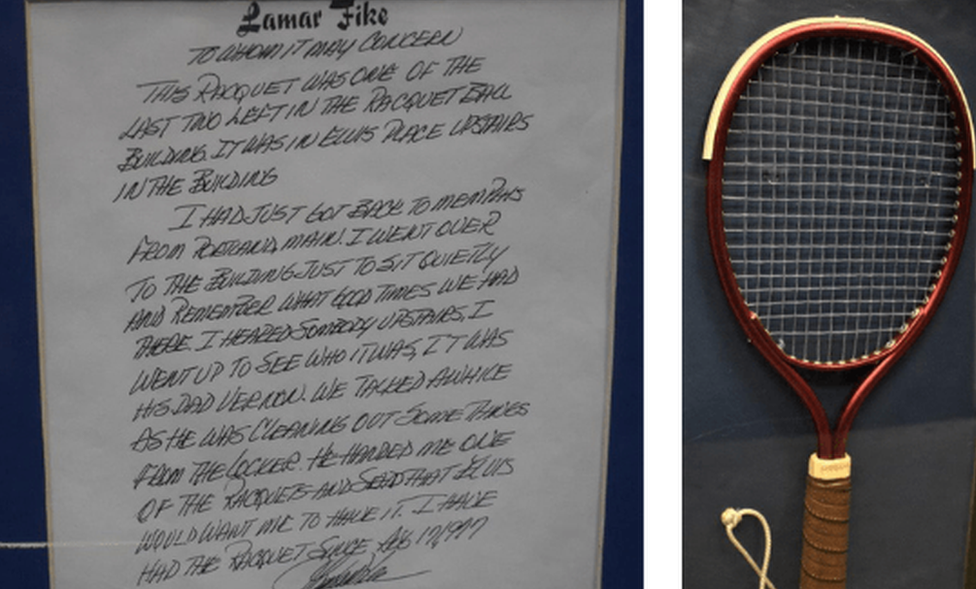 Lamar Fike
TO WHOM IT MAY CONCERN
THIS RACQUET WAS ONE OF THE
LAST TWO LEFT IN THE RACQUET BALL
BUILDING. IT WAS IN ELVIS PLACE UPSTAIRS
IN THE BUILDING
I HAD JUST GOT BACK TO MEMPHIS
FROM PORTLAND, MAIN. I WENT OVER
TO THE BUILDING JUST TO SIT QUIETLY
AND REMEMBER WHAT GOOD TIMES WE HAD
THERE. I HEARED SOMBODY UPSTAIRS, I
WENT UP TO SEE WHO IT WAS, IT WAS
HIS DAD VERNON. WE TALKED AWHILE
AS HE WAS CLEANING OUT SOME THINGS
FROM THE LOCKER. HE HANDED ME ONE
OF THE RACQUETS AND SAID THAT ELVIS
WOULD WANT ME TO HAVE IT. I HAVE
HAD THE RACQUET SINCE AUG 17, 1977